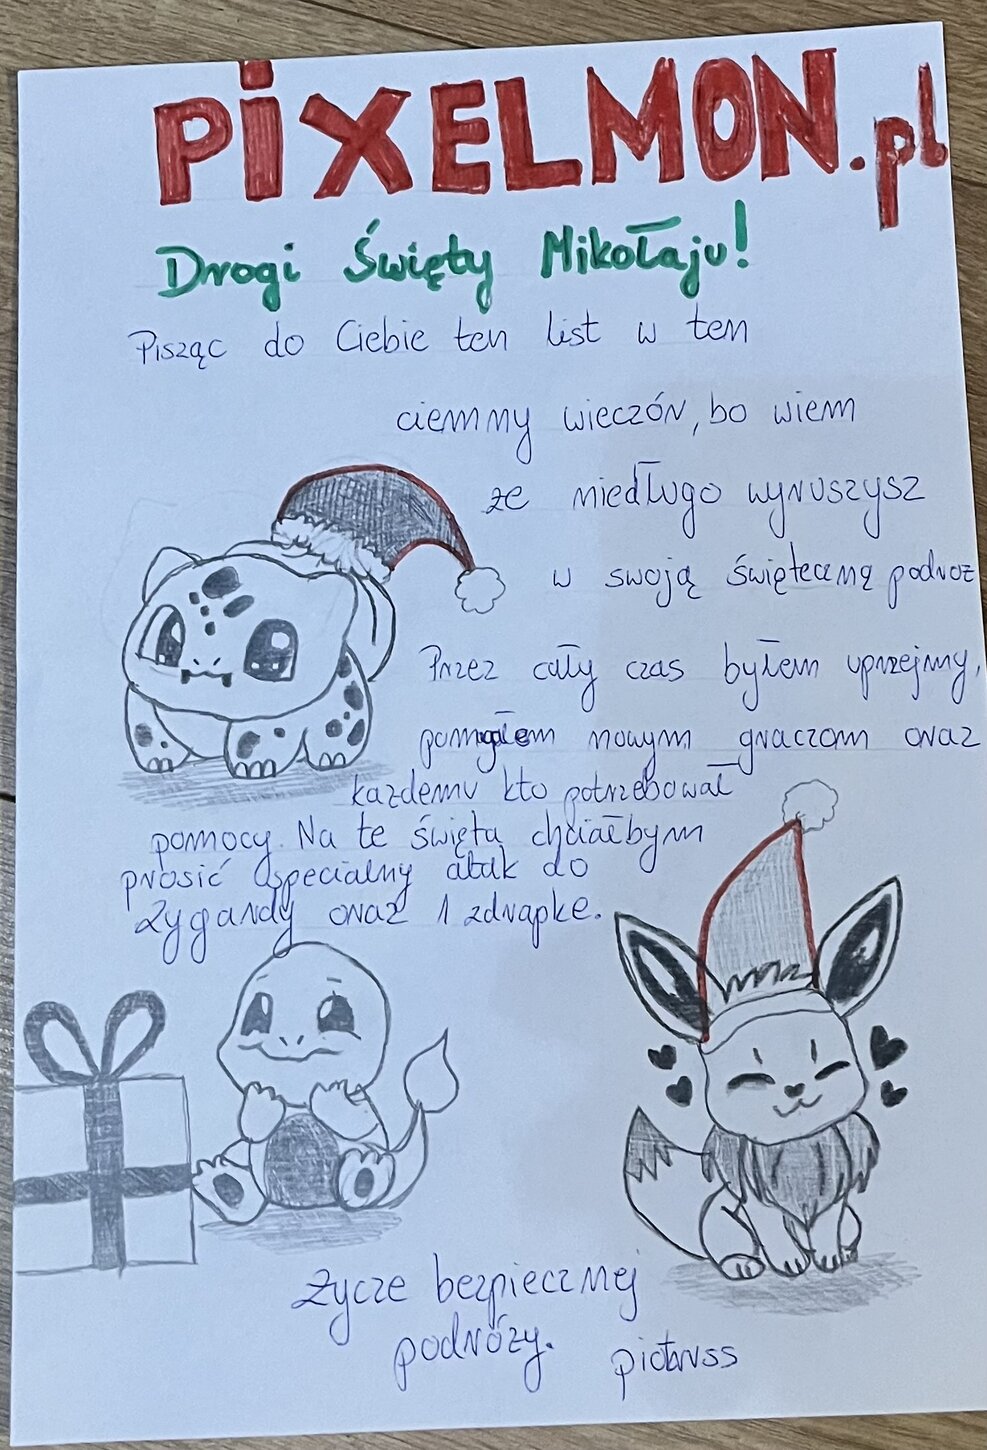 PiXELMON.pl
Drogi Święty Mikołaju!
Pisząc do Ciebie ten list w ten
ciemny wieczór, bo wiem
że niedługo wyruszysz
w swoją świąteczną podróż
Przez cały czas byłem uprzejmy,
pomogłem nowym graczom oraz
każdemu kto potrzebował
pomocy. Na te święta chciałbym
prosić o specialny atak do
Zygardy oraz 1 zdrapke.
Życze bezpiecznej
podróży.
piotruss